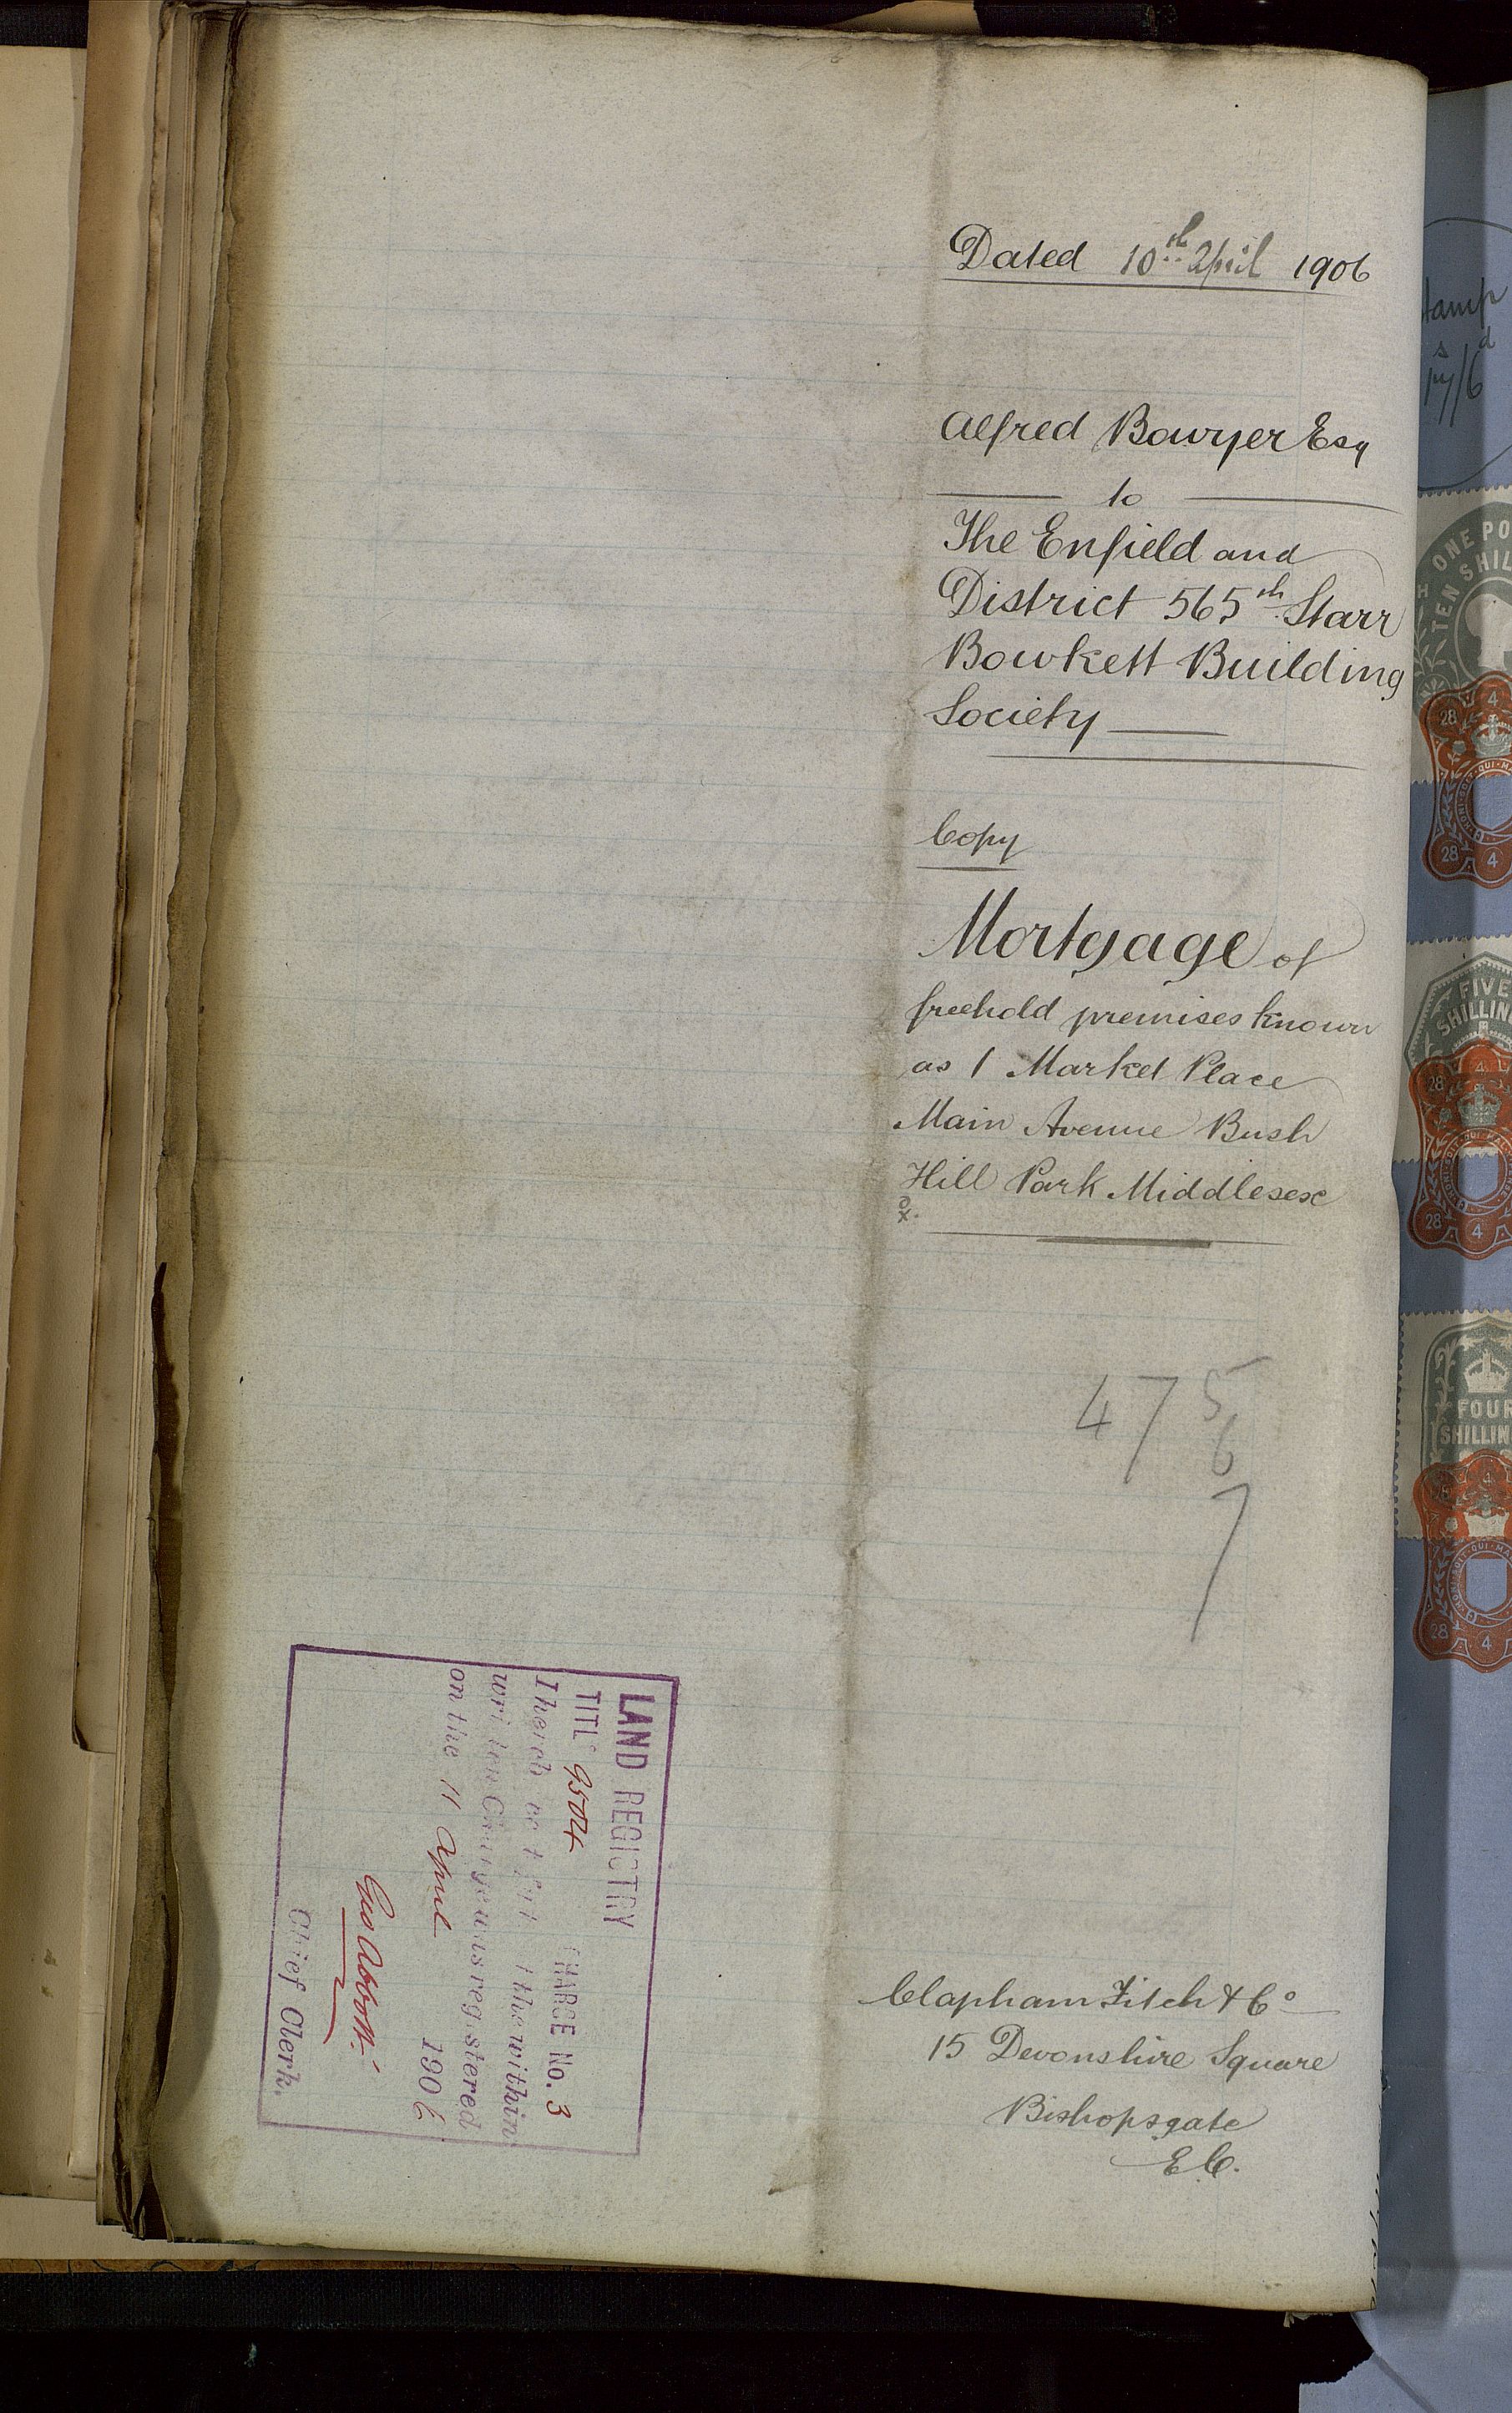 Dated 10th April 1906
Alfred Bowyer Esq
to
The Enfield and
District 565th Starr
Bowkett Building
Society
Copy
Mortgage of
freehold premises known
as 1 Market Place
Main Avenue Bush
Hill Park Middlesex
475
6
7
Clapham Fitch & Co
15 Devonshire Square
Bishopsgate
E.C.
LAND REGISTRY
TITLE 9504 CHARGE No. 3
I hereby certify the within
written Charge was registered
on the 11 April 1906
Geo Abbott
Chief Clerk.
tamp
s d
17/6
ONE PO
TEN SHIL
28 4
QUI MA
28 4
FIVE
SHILLIN
28 4
28 4
FOUR
SHILLIN
QUI MA
28 4